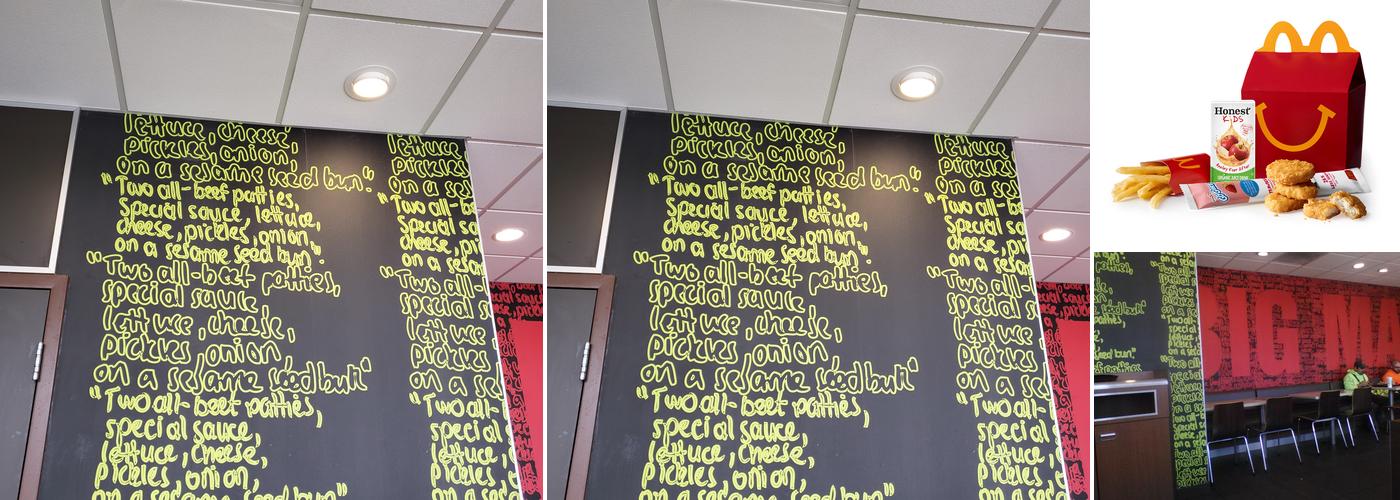 lettuce, cheese,
pickles, onion,
on a sesame seed bun."
"Two all-beef patties,
special sauce, lettuce,
cheese, pickles, onion,
on a sesame seed bun."
"Two all-beef patties,
special sauce
lettuce, cheese,
pickles, onion
on a sesame seed bun"
"Two all-beef patties,
special sauce,
lettuce, cheese,
pickles, onion,
on a sesame seed bun"
lettuce
pickles,
on a ses
"Two all-be
special sa
cheese, pi
on a sesa
"Two all-
special s
lettuce
pickles
on a se
"Two all-
special s
lettuce,
pickles
on a se
lettuce, cheese,
pickles, onion,
on a sesame seed bun."
"Two all-beef patties,
special sauce, lettuce,
cheese, pickles, onion,
on a sesame seed bun."
"Two all-beef patties,
special sauce
lettuce, cheese,
pickles, onion
on a sesame seed bun"
"Two all-beef patties,
special sauce,
lettuce, cheese,
pickles, onion,
on a sesame seed bun"
lettuce
pickles,
on a ses
"Two all-be
special sa
cheese, pi
on a sesa
"Two all-
special s
lettuce
pickles
on a se
"Two all-
special s
lettuce,
pickles
on a se
Honest
KIDS
ORGANIC JUICE DRINK
BIG MA